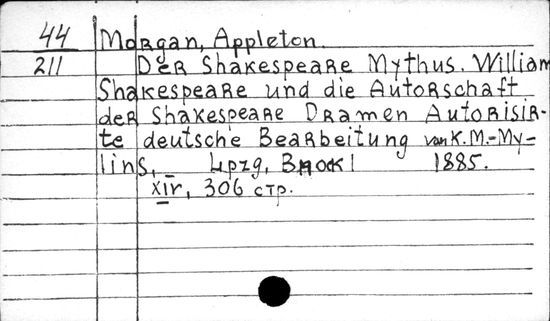 44 Morgan, Appleton.
211 Der Shakespeare Mythus. William
Shakespeare und die Autorschaft
der Shakespeare Dramen Autorisir-
te deutsche Bearbeitung von K.M.-My-
lins, Lpzg, Brock 1885.
XIV, 306 стр.